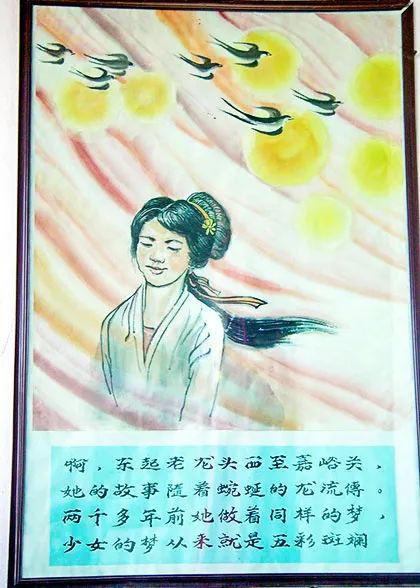 啊，东起老龙头西至嘉峪关，
她的故事隨着蜿蜒的龙流傳。
两千多年前她做着同样的梦，
少女的梦从来就是五彩斑斓